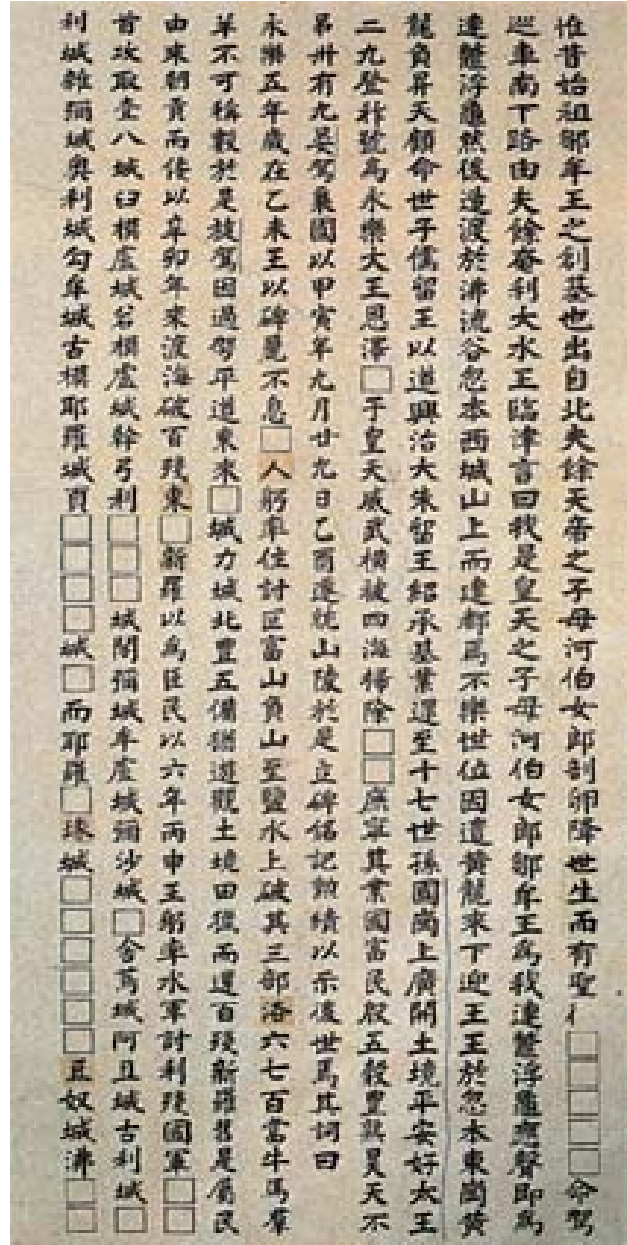 惟昔始祖鄒牟王之創基也出自北夫餘天帝之子母河伯女郎剖卵降世生而有聖彳□□□□□命駕
巡車南下路由夫餘奄利大水王臨津言曰我是皇天之子母河伯女郎鄒牟王為我連鼈浮龜應聲即為
連鼈浮龜然後造渡於沸流谷忽本西城山上而建都焉不樂世位因遣黃龍來下迎王王於忽本東崗黃
龍負昇天顧命世子儒留王以道興治大朱留王紹承基業還至十七世孫國崗上廣開土境平安好太王
二九登祚號為永樂太王恩澤□于皇天威武橫被四海掃除□□庶寧其業國富民殷五穀豐熟昊天不
弔卅有九晏駕棄國以甲寅年九月廿九日乙酉遷就山陵於是立碑銘記勳績以示後世焉其詞曰
永樂五年歲在乙未王以碑麗不息□人躬率住討叵富山負山至鹽水上破其三部洛六七百當牛馬羣
羊不可稱數於是旋駕因過駕平道東來□城力城北豐五備猶遊觀土境田獵而還百殘新羅舊是屬民
由來朝貢而倭以辛卯年來渡海破百殘東□新羅以為臣民以六年丙申王躬率水軍討利殘國軍□□
首攻取壹八城臼模盧城若模盧城幹弓利□□□城閣彌城牟盧城彌沙城□舍蔦城阿旦城古利城□
利城雜彌城奧利城勾牟城古模耶羅城頁□□□□城□而耶羅□瑑城□□□□□□豆奴城沸□□